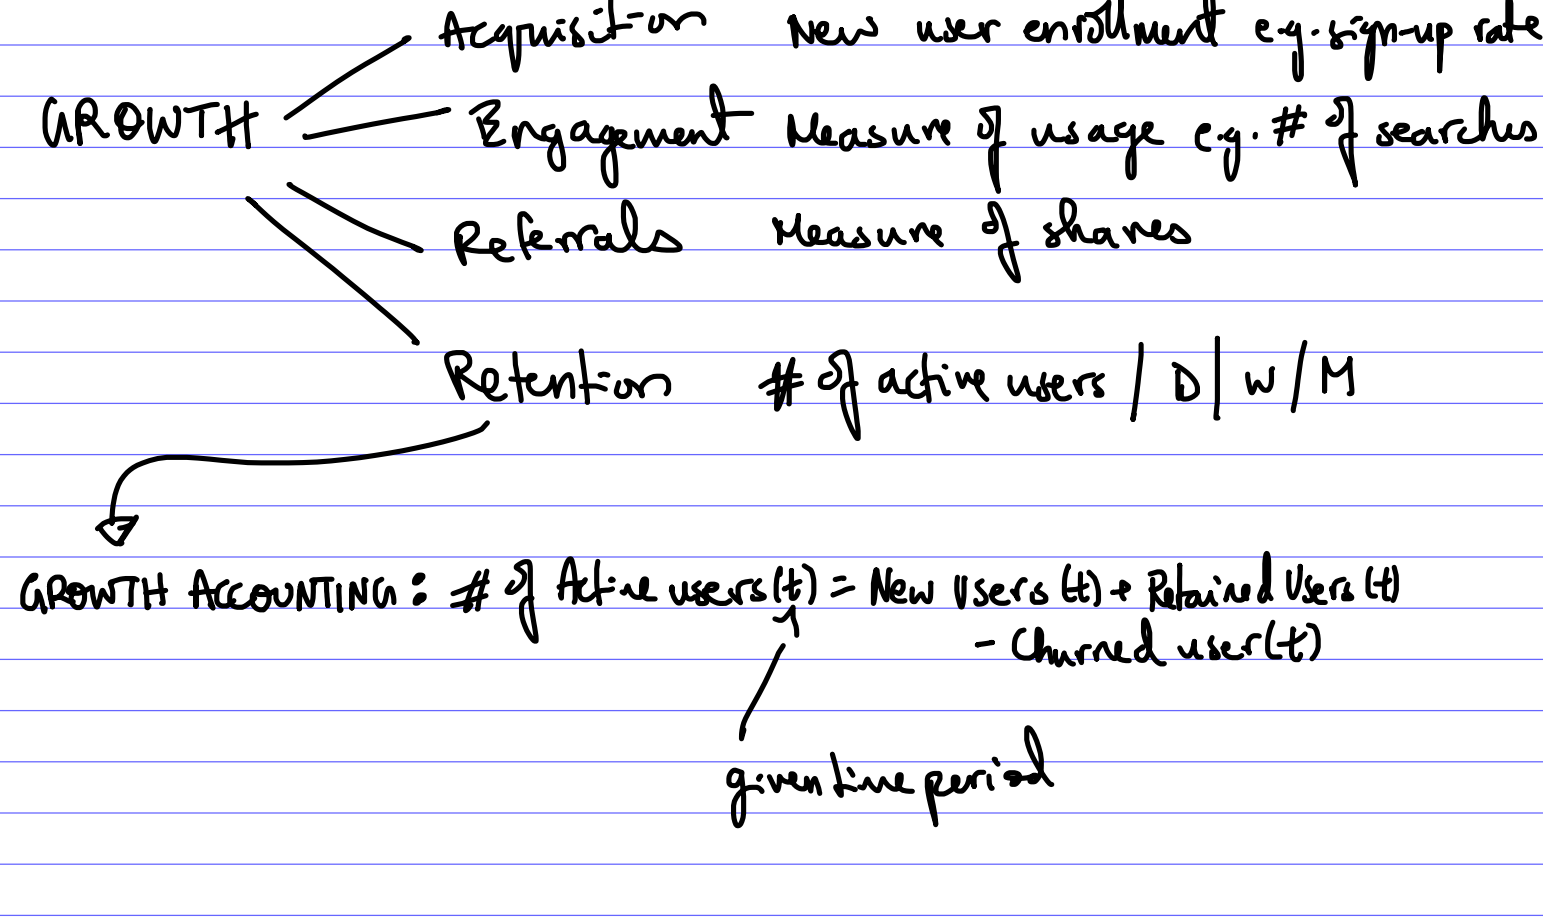 Acquisition New user enrollment e.g. sign-up rate
GROWTH Engagement Measure of usage e.g. # of searches
Referrals Measure of shares
Retention # of active users / D | W / M
GROWTH ACCOUNTING: # of Active users (t) = New Users (t) + Retained Users (t)
- Churned user (t)
given time period